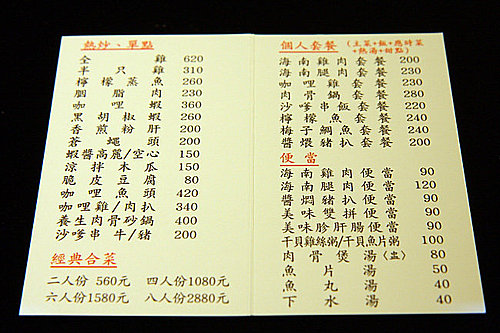 熱炒、單點
全雞 620
半只雞 310
檸檬蒸魚 260
胭脂肉 230
咖哩蝦 360
黑胡椒蝦 260
香煎粉肝 200
蒼蠅頭 200
蝦醬高麗/空心 150
涼拌木瓜 150
脆皮豆腐 80
咖哩魚頭 420
咖哩雞/肉扒 340
養生肉骨砂鍋 400
沙嗲串牛/豬 200
經典合菜
二人份 560元 四人份1080元
六人份1580元 八人份2880元
個人套餐 (主菜+飯+應時菜+熱湯+甜點)
海南雞肉套餐 200
海南腿肉套餐 230
咖哩雞套餐 230
肉骨鍋套餐 280
沙嗲串飯套餐 220
檸檬魚套餐 240
梅子鯛魚套餐 240
醬煨豬扒套餐 200
便當
海南雞肉便當 90
海南腿肉便當 120
醬燜豬扒便當 90
美味雙拼便當 90
美味胗肝腸便當 90
干貝雞絲粥/干貝魚片粥 100
肉骨煲湯(盅) 80
魚片湯 50
魚丸湯 40
下水湯 40